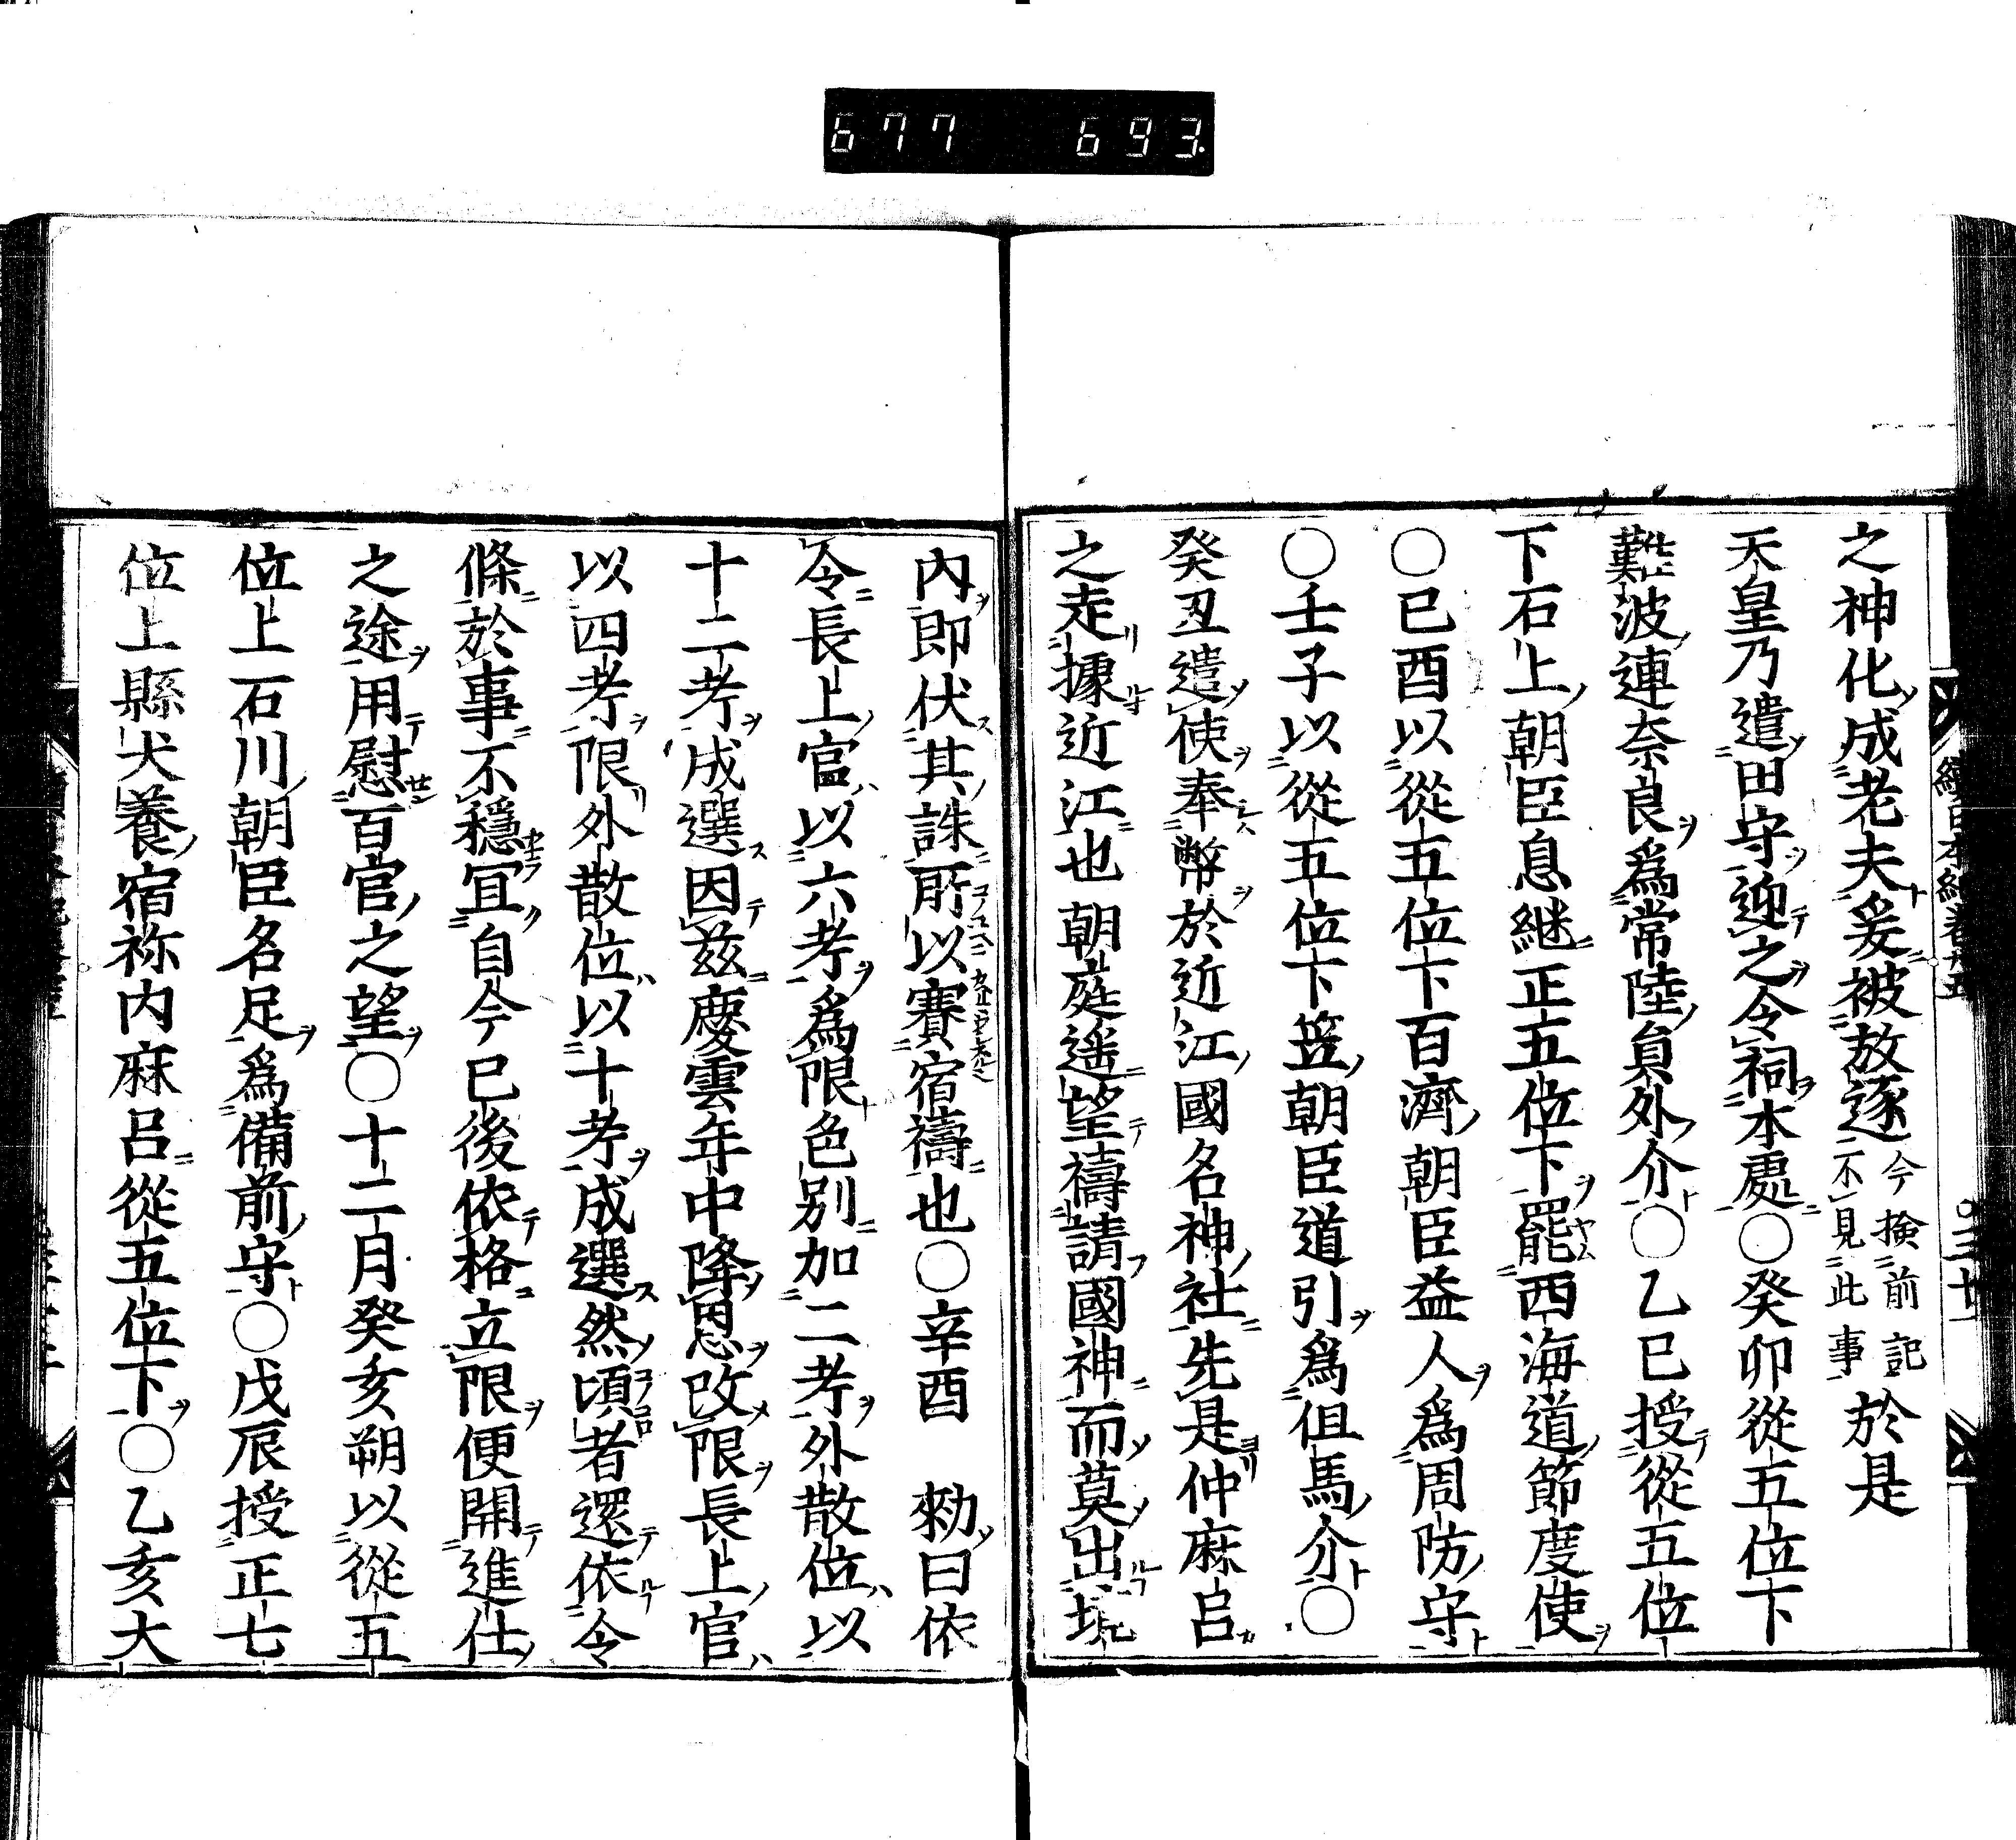 677 693
之神化成老夫爰被放逐今撿前記不見此事於是
天皇乃遣田守迎之令祠本處○癸卯從五位下
難波連奈良爲常陸員外介○乙巳授從五位
下石上朝臣息継正五位下罷西海道節度使
○已酉以從五位下百濟朝臣益人爲周防守
○壬子以從五位下笠朝臣道引爲但馬介○
癸丑遣使奉幣於近江國名神社先是仲麻呂
之走據近江也朝庭遥望禱請國神而莫出境
內即伏其誅所以賽宿禱也○辛酉 勑曰依
令長上官以六考爲限色別加二考外散位以
十二考成選因兹慶雲年中降恩改限長上官
以四考限外散位以十考成選然頃者還依令
條於事不穩冝自今已後依格立限便開進仕
之途用慰百官之望○十二月癸亥朔以從五
位上石川朝臣名足爲備前守○戊辰授正七
位上縣犬養宿祢内麻呂從五位下○乙亥大